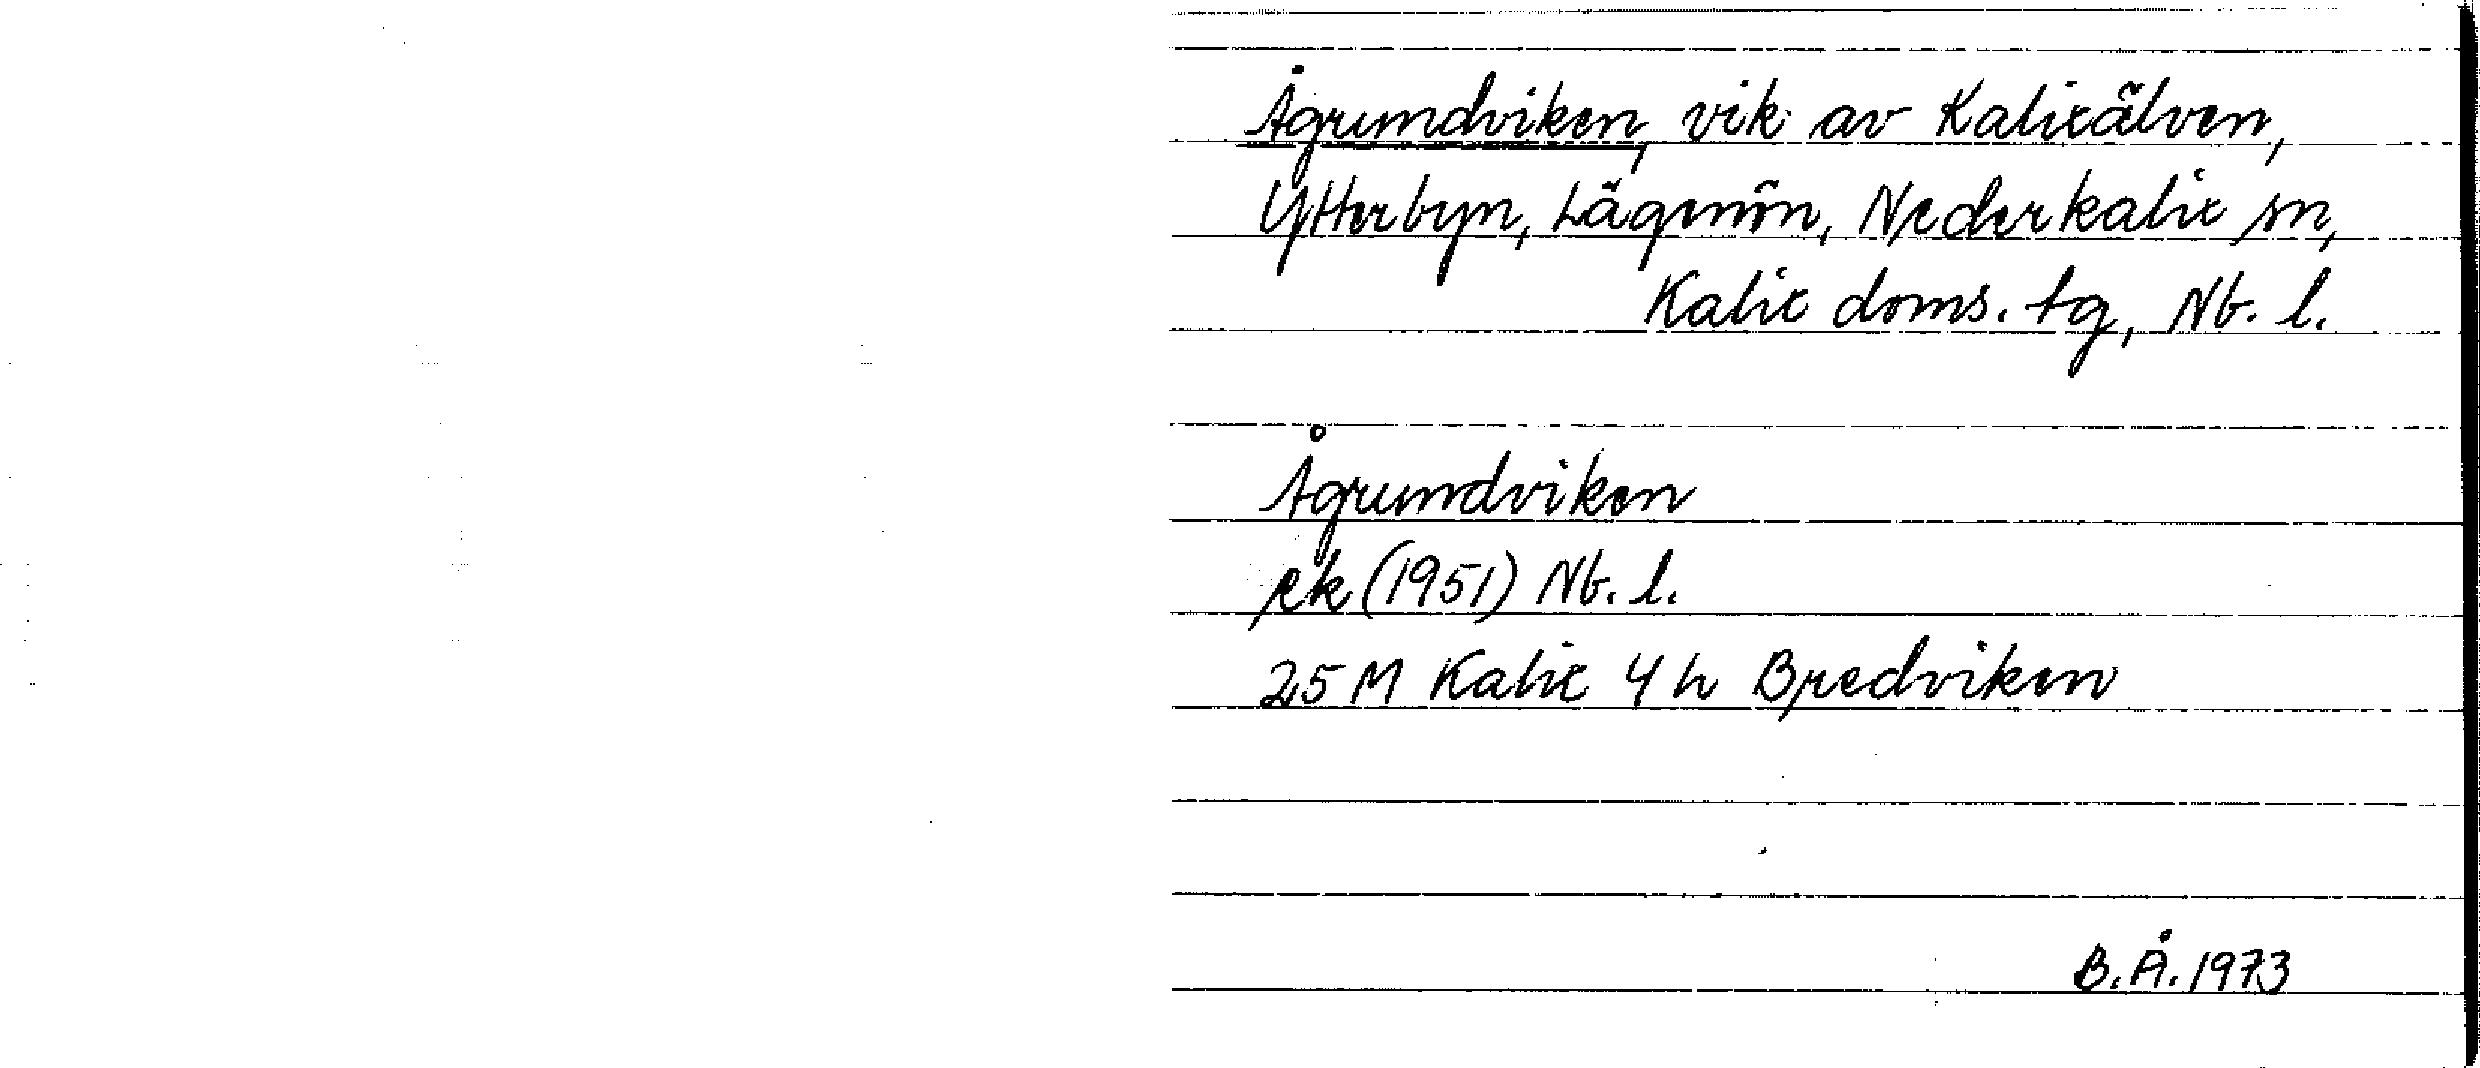 Ågrundviken, vik av Kalixälven,
Ytterbyn, Lågmön, Nederkalix sn,
Kalix doms. tg, Nb. l.
Ågrundviken
rk (1951) Nb. l.
25 M Kalix 4 h Bredviken
B.Å. 1973